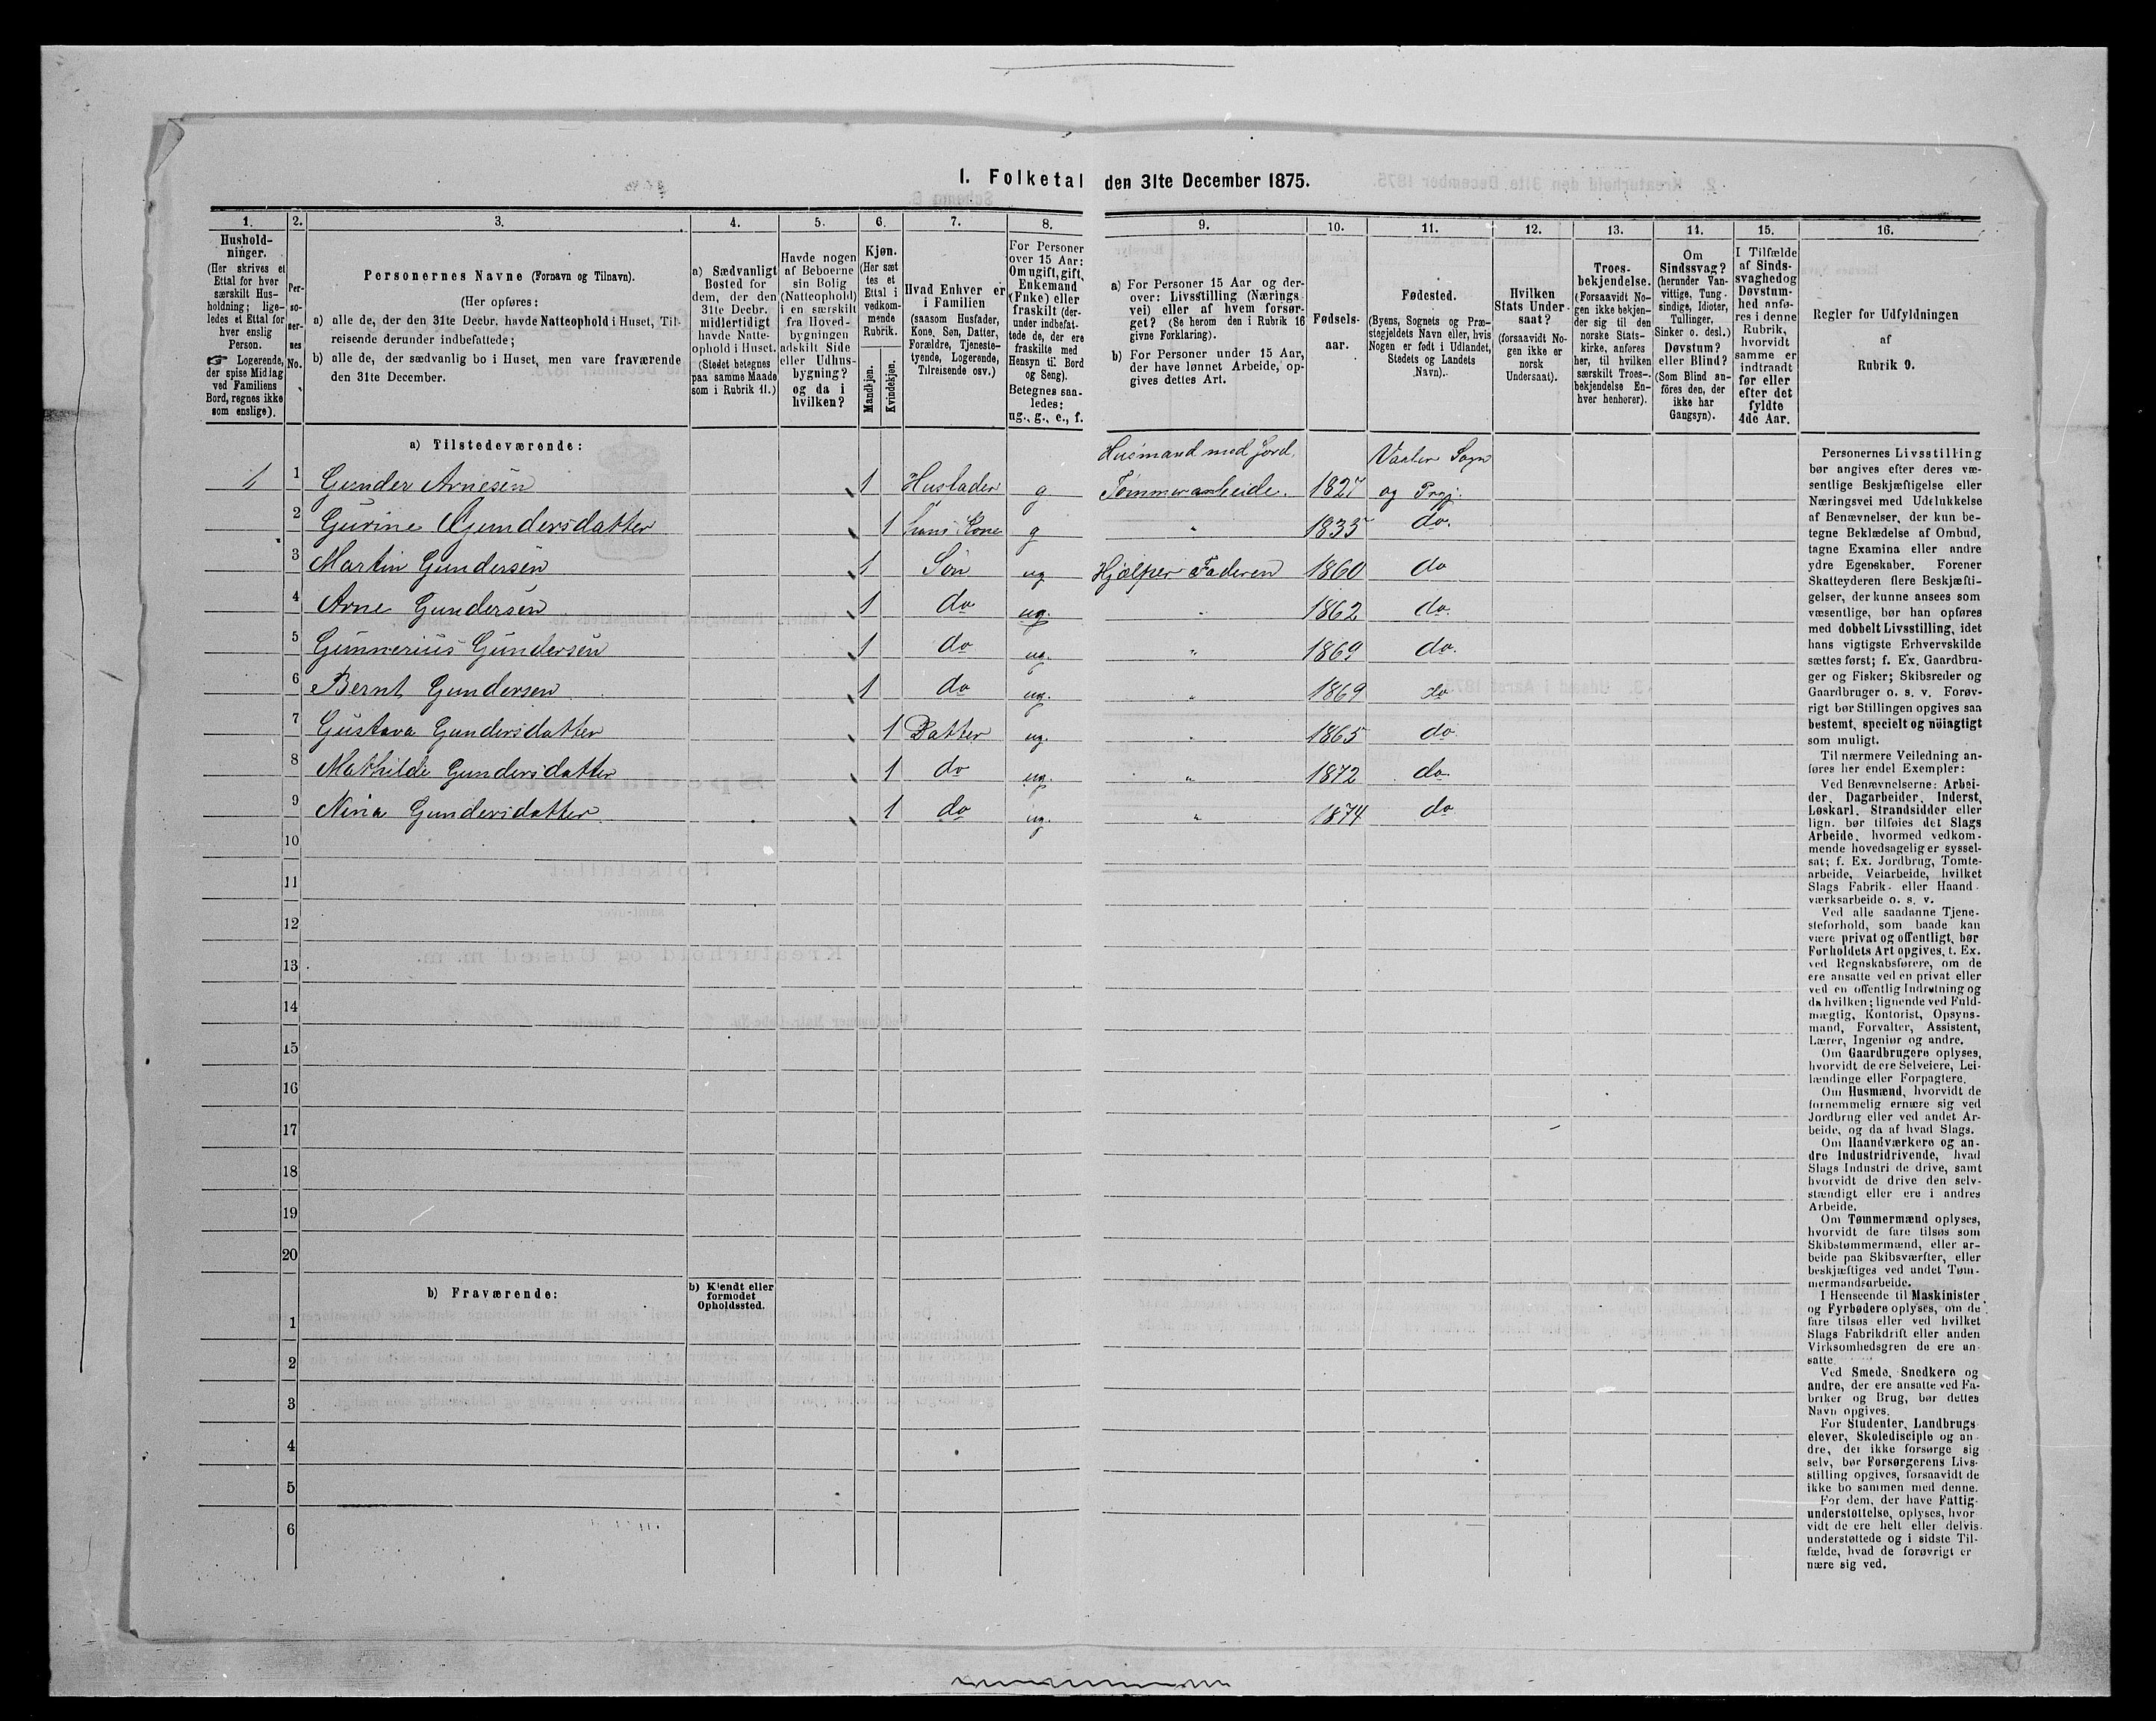 I. Folketal den 31te December 1875.
1.
2.
3.
4.
5.
6.
7.
8.
9.
10.
11.
12.
13.
14.
15.
16.
Hushold-
ninger.
(Her skrives et
Ettal for hver
særskilt Hus-
holdning; lige-
ledes et Ettal for
hver enslig
Person.
☞ Logerende,
der spise Midlag
ved Familiens
Bord, regnes ikke
som enslige).
Per-
so-
ner-
nes
No.
Personernes Navne (Fornavn og Tilnavn).
(Her opføres:
a) alle de, der den 31te Decbr. havde Natteophold i Huset, Til-
reisende derunder indbefattede;
b) alle de, der sædvanlig bo i Huset, men vare fraværende
den 31te December.
a) Sædvanligt
Bosted for
dem, der den
31te Decbr.
midlertidigt
havde Natte-
ophold i Huset.
(Stedet betegnes
paa samme Maade
som i Rubrik 11.)
Havde nogen
af Beboerne
sin Bolig
(Natteophold)
i en særskilt
fra Hoved-
bygningen
adskilt Side
eller Udhus-
bygning?
og da i
hvilken?
Kjøn.
(Her sæt
tes et
Ettal i
vedkom-
mende
Rubrik.
Mandkjøn.
Kvindekjøn.
Hvad Enhver er
i Familien
(saasom Husfader,
Kone, Søn, Datter,
Forældre, Tjeneste-
tyende, Logerende,
Tilreisende osv.)
For Personer
over 15 Aar:
Om ugift, gift,
Enkemand
(Enke) eller
fraskilt (der-
under indbefat-
tede de, der ere
fraskilte med
Hensyn til Bord
og Seng).
Betegnes saa-
ledes:
ug., g., e., f.
a) For Personer 15 Aar og der-
over: Livsstilling (Nærings
vei) eller af hvem forsør-
get? (Se herom den i Rubrik 16
givne Forklaring).
b) For Personer under 15 Aar,
der have lønnet Arbeide, op-
gives dettes Art.
Fødsels-
aar.
Fødested.
(Byens, Sognets og Præ-
stegjeldets Navn eller, hvis
Nogen er født i Udlandet,
Stedets og Landets
Navn).
Hvilken
Stats Under-
saat?
(forsaavidt No-
gen ikke er
norsk
Undersaat).
Troes-
bekjendelse.
(Forsaavidt No-
gen ikke bekjen-
der sig til den
norske Stats-
kirke, anføres
her, til hvilken
særskilt Troes-
bekjendelse En-
hver henhører).
Om
Sindssvag?
(herunder Van-
vittige, Tung-
sindige, Idioter,
Tullinger,
Sinker o. desl.)
Døvstum?
eller Blind?
(Som Blind an-
føres den, der
ikke har
Gangsyn).
I Tilfælde
af Sinds-
svaghed og
Døvstum-
hed anfø-
res i denne
Rubrik,
hvorvidt
samme er
indtraadt
før eller
efter det
fyldte
4de Aar.
Regler for Udfyldningen
af
Rubrik 9.
a) Tilstedeværende:
Husmand med Jord,
Vaaler Sogn
1 1 Gunder Arnesen 1 Husfader g Tømmerarbeide. 1827 og Prgj.
2 Gurine Gundersdatter 1 hans Kone g " 1835 do.
3 Martin Gundersen 1 Søn ug Hjælper Faderen 1860 do
4 Arne Gundersen 1 do ug. " 1862 do.
5 Gunnerius Gundersen 1 do ug. " 1869 do.
6 Bernt Gundersen 1 do ug. " 1869 do
7 Gustava Gundersdatter 1 Datter ug. " 1865 do.
8 Mathilde Gundersdatter 1 do ug. " 1872 do.
9 Nina Gundersdatter 1 do ug. " 1874 do
10
11
12
13
14
15
16
17
18
19
20
b) Fraværende:
b) Kjendt eller
formodet
Opholdssted.
1
2
3
4
5
6
Personernes Livsstilling
bør angives efter deres væ-
sentlige Beskjæftigelse eller
Næringsvei med Udelukkelse
af Benævnelser, der kun be-
tegne Beklædelse af Ombud,
tagne Examina eller andre
ydre Egenskaber. Forener
Skatteyderen flere Beskjæfti-
gelser, der kunne ansees som
væsentlige, bør han opføres
med dobbelt Livsstilling, idet
hans vigtigste Erhvervskilde
sættes først; f. Ex. Gaardbru-
ger og Fisker; Skibsreder og
Gaardbruger o. s. v. Forøv-
rigt bør Stillingen opgives saa
bestemt, specielt og nöiagtigt
som muligt.
Til nærmere Veiledning an-
føres her endel Exempler:
Ved Benævnelserne: Arbei-
der, Dagarbeider, Inderst,
Løskarl, Strandsidder eller
lign. bør tilføies det Slags
Arbeide, hvormed vedkom-
mende hovedsagelig er syssel-
sat; f. Ex. Jordbrug, Tomte-
arbeide, Veiarbeide, hvilket
Slags Fabrik- eller Haand-
værksarbeide o. s. v.
Ved alle saadanne Tjene-
steforhold, som baade kan
være privat og offentligt, bør
Forholdets Art opgives, t. Ex.
ved Regnskabsførere, om de
ere ansatte ved en privat eller
ved en offentlig Indretning og
da hvilken; lignende ved Fuld-
mægtig, Kontorist, Opsyns-
mand, Forvalter, Assistent,
Lærer, Ingeniør og andre.
Om Gaardbrugere oplyses,
hvorvidt de ere Selveiere, Lei-
lændinge eller Forpagtere.
Om Husmænd, hvorvidt de
fornemmelig ernære sig ved
Jordbrug eller ved andet Ar-
beide, og da af hvad Slags.
Om Haandværkere og an-
dre Industridrivende, hvad
Slags Industri de drive, samt
hvorvidt de drive den selv-
stændigt eller ere i andres
Arbeide.
Om Tømmermænd oplyses,
hvorvidt de fare tilsøs som
Skibstømmermænd, eller ar-
beide paa Skibsværfter, eller
beskjæftiges ved andet Tøm-
mermandsarbeide.
I Henseende til Maskinister
og Fyrbødere oplyses, om de
fare tilsøs eller ved hvilket
Slags Fabrikdrift eller anden
Virksomhedsgren de ere an-
satte.
Ved Smede, Snedkere og
andre, der ere ansatte ved Fa-
briker og Brug, bør dettes
Navn opgives.
For Studenter, Landbrugs-
elever, Skoledisciple og an-
dre, der ikke forsørge sig
selv, bør Forsørgerens Livs-
stilling opgives, forsaavidt de
ikke bo sammen med denne.
For dem, der have Fattig-
understøttelse, oplyses, hvor-
vidt de ere helt eller delvis
understøttede og i sidste Til-
fælde, hvad de forøvrigt er
nære sig ved.